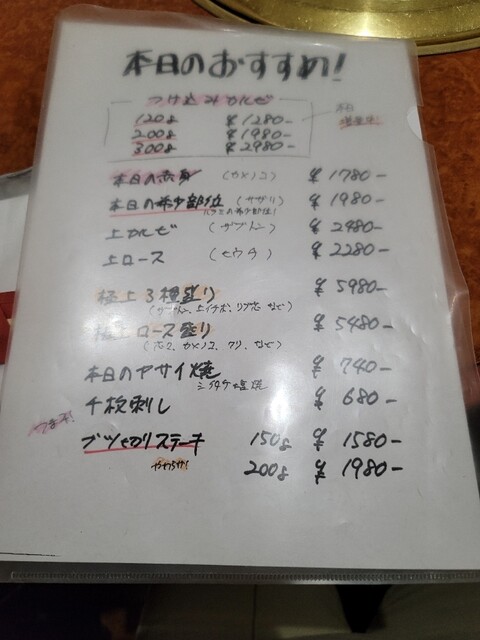 本日のおすすめ!
つけ込みカルビ
120g ¥1280-
200g ¥1980-
300g ¥2980-
本日
本日の赤身 (カメノコ) ¥1780-
本日の希少部位 (サガリ) ¥1980-
ハラミの希少部位!
上カルビ (ザブトン) ¥2480-
上ロース (ヒウチ) ¥2280-
極上3種盛り ¥5980-
(ザブトン、上イチボ、リブ芯 など)
極上ロース盛り ¥5480-
(芯2、カメノコ、クリ、など)
本日のヤサイ焼 ¥740-
シイタケ塩焼
千枚刺し ¥680-
ブツ切りステーキ 150g ¥1580-
やわらか! 200g ¥1980-